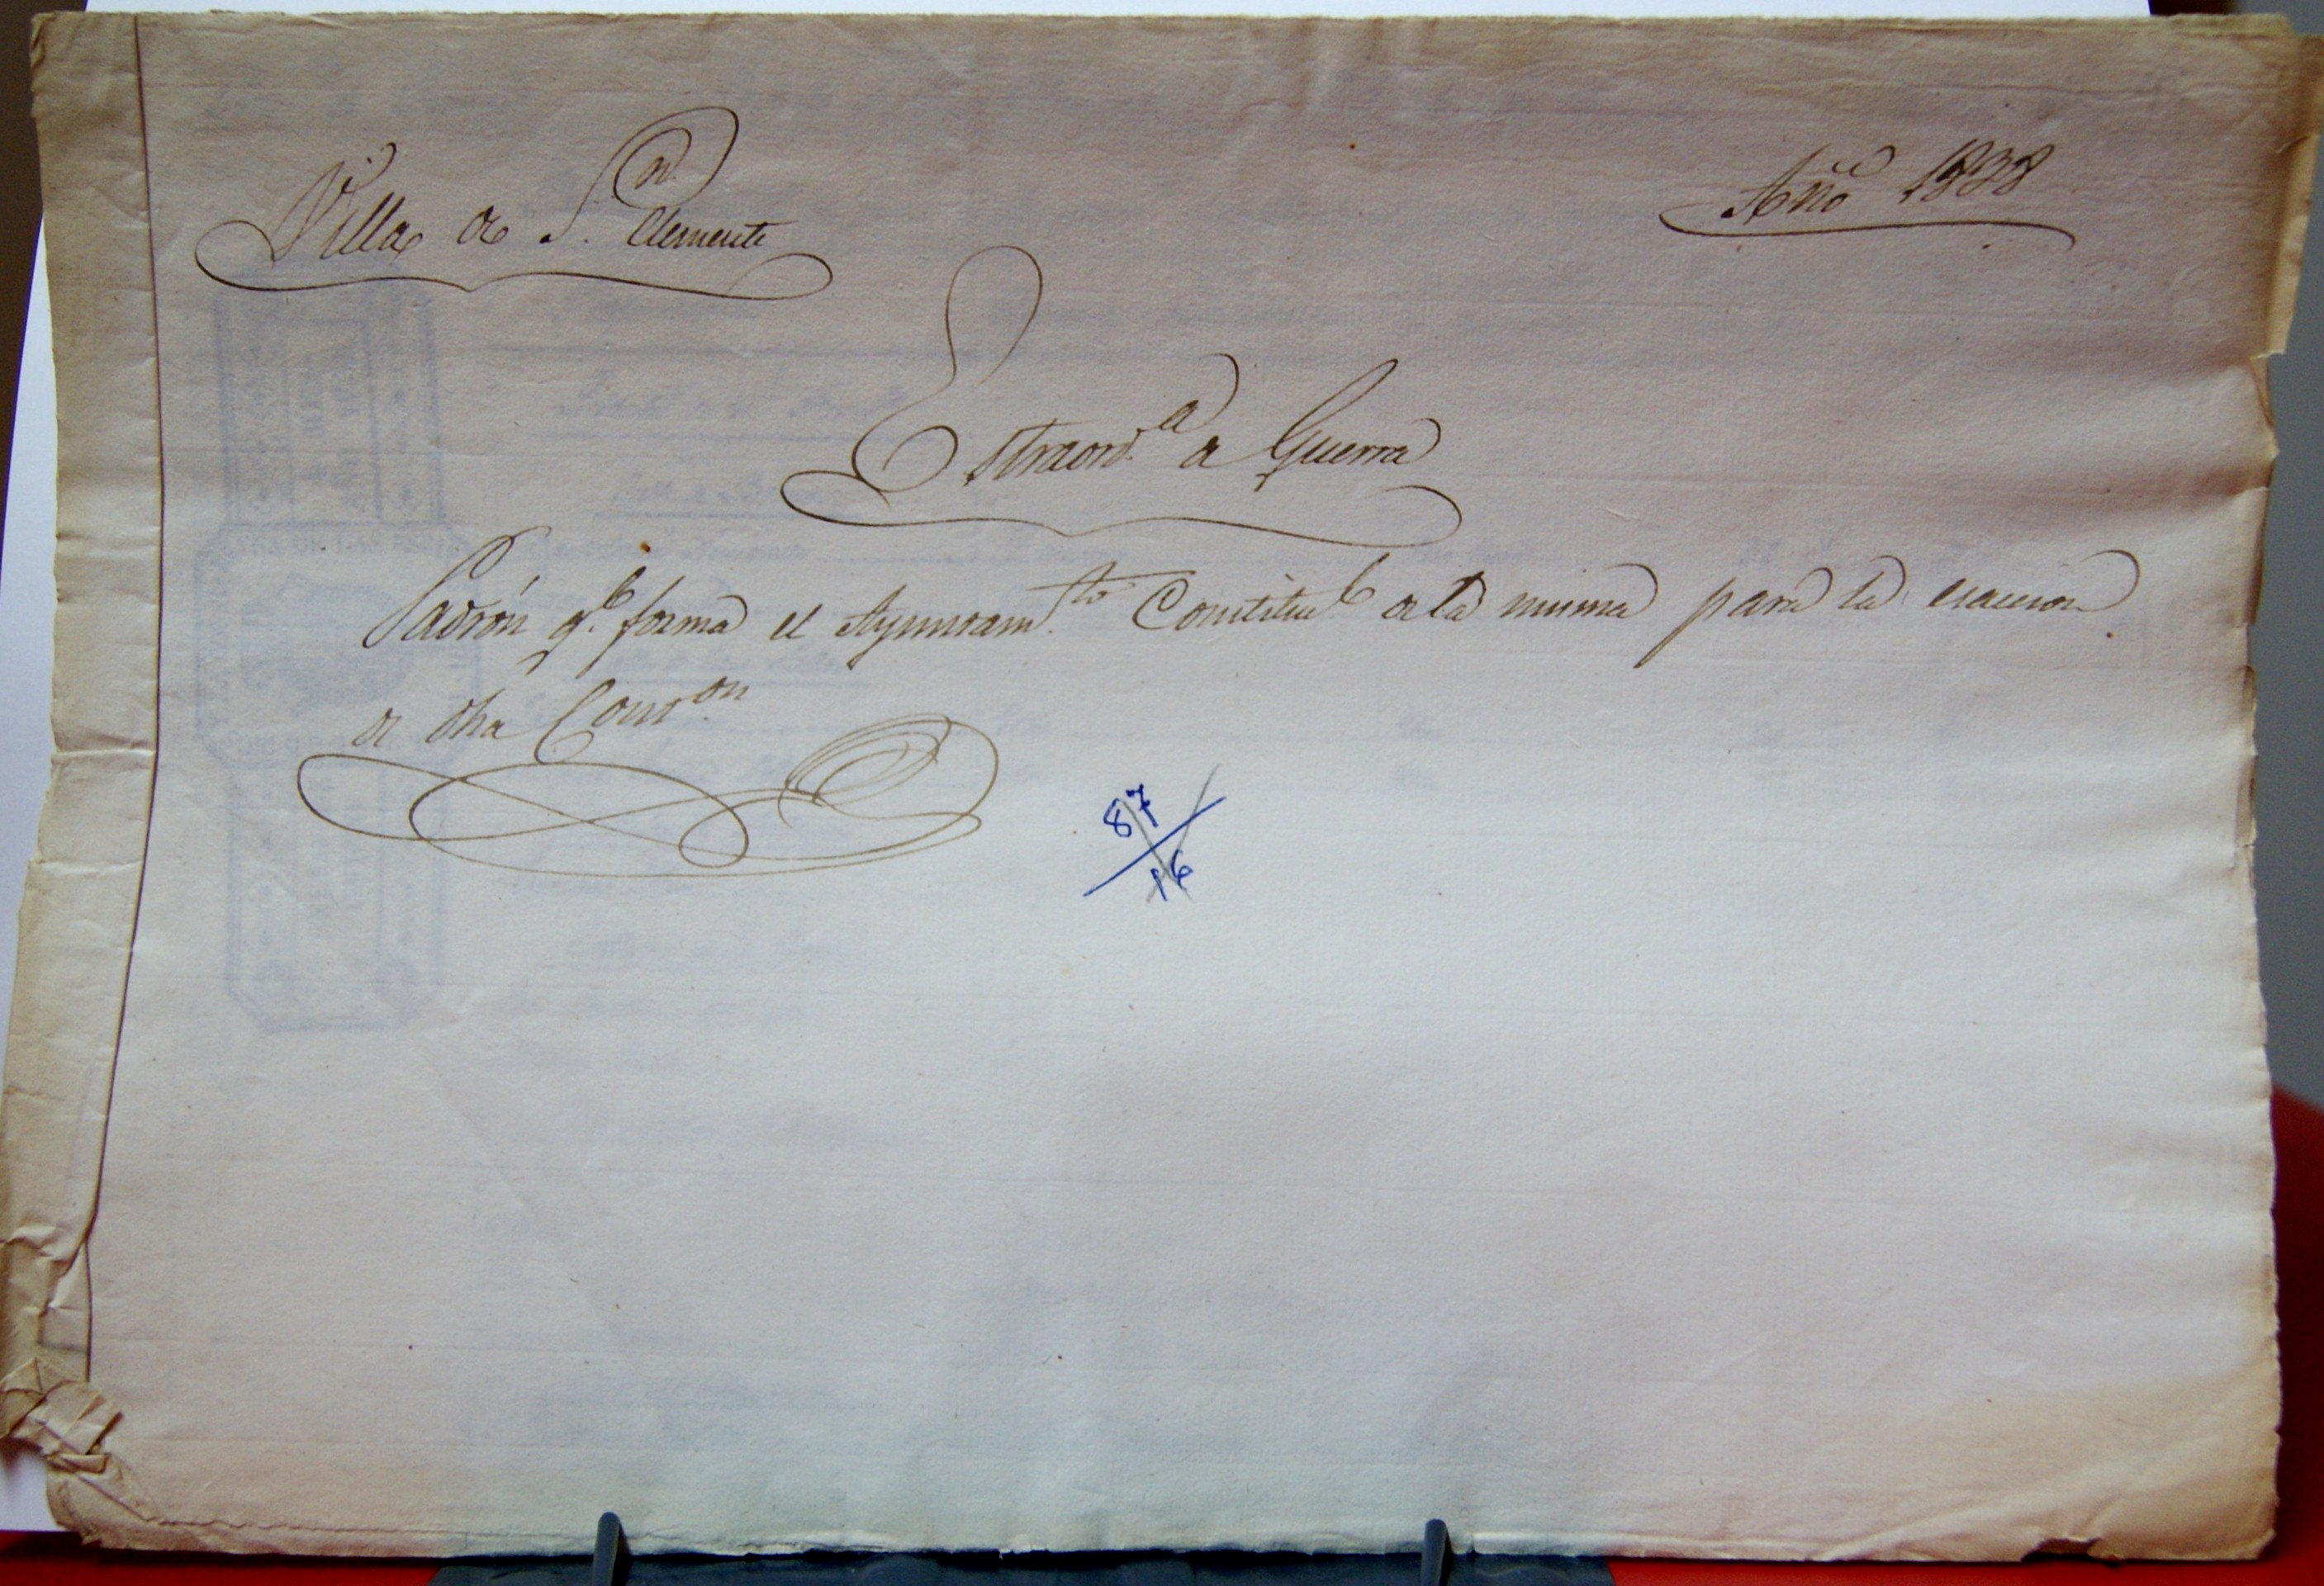 Villa de S.n Clemente
Año 1838
Estraord.a de Guerra
Padrón q.e forma el Ayuntam.to Constitu.l de la misma para la esaccion
de dha Contr.on
87/16